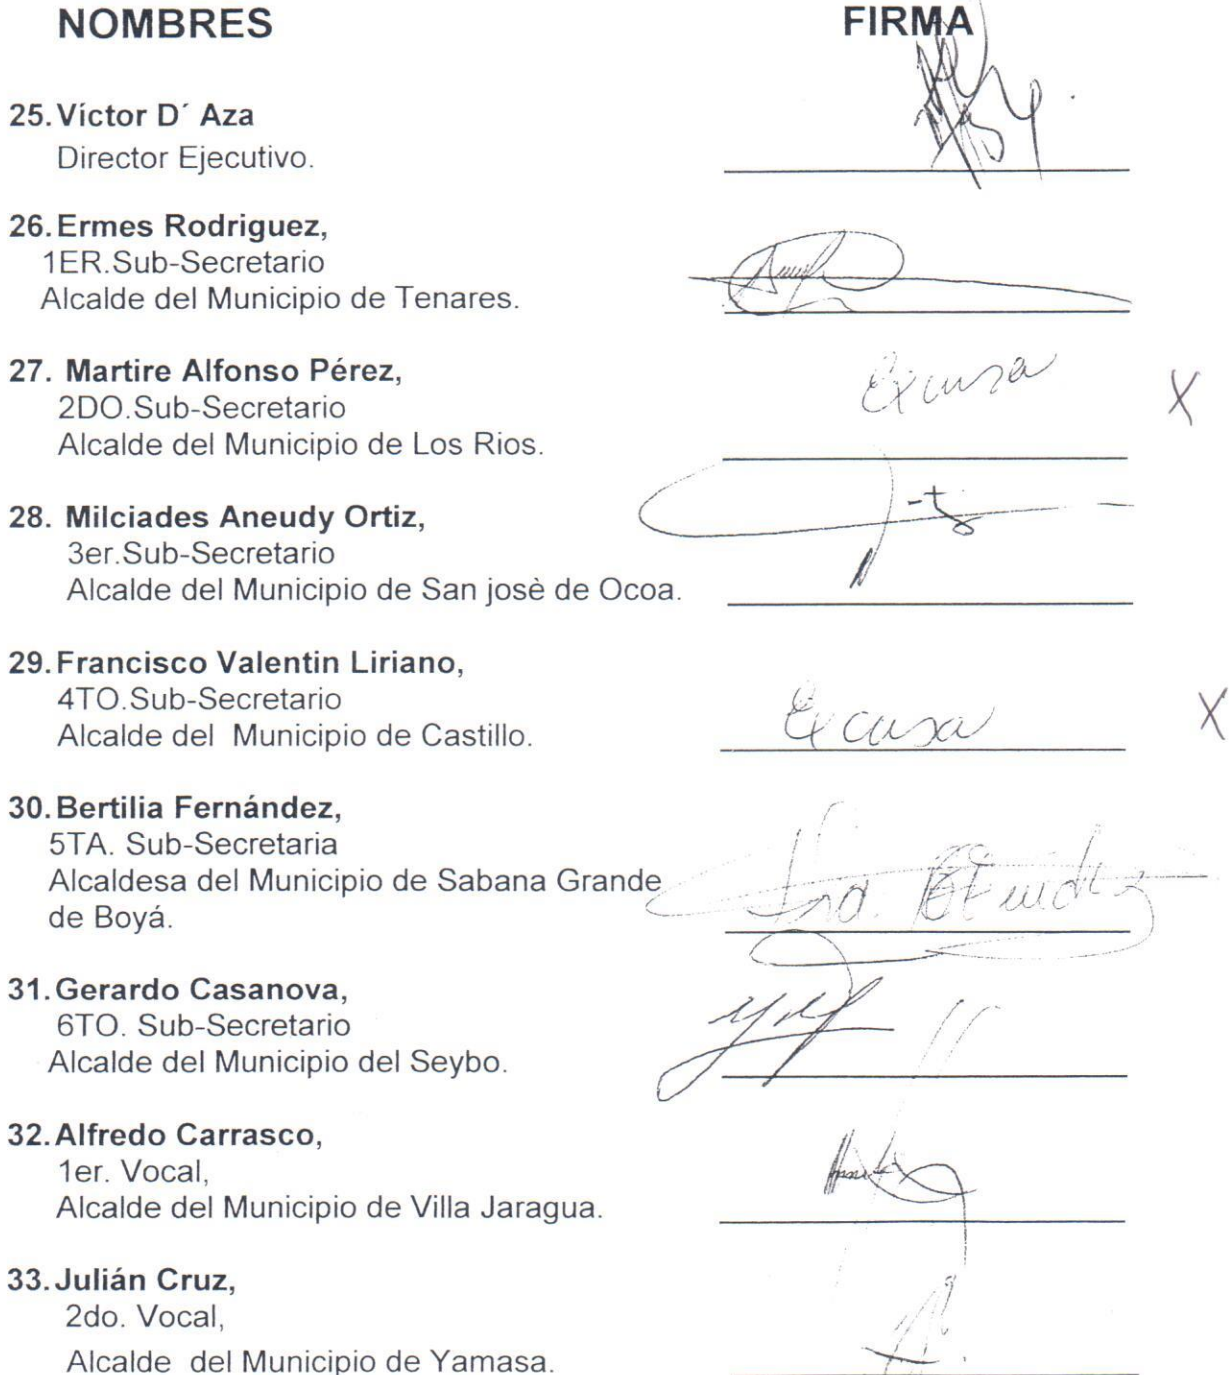 NOMBRES FIRMA
25. Víctor D´ Aza
Director Ejecutivo.
26. Ermes Rodriguez,
1ER.Sub-Secretario
Alcalde del Municipio de Tenares.
27. Martire Alfonso Pérez,
2DO.Sub-Secretario
Alcalde del Municipio de Los Rios.
Excusa X
28. Milciades Aneudy Ortiz,
3er.Sub-Secretario
Alcalde del Municipio de San josè de Ocoa.
29. Francisco Valentin Liriano,
4TO.Sub-Secretario
Alcalde del Municipio de Castillo.
Excusa X
30. Bertilia Fernández,
5TA. Sub-Secretaria
Alcaldesa del Municipio de Sabana Grande
de Boyá.
31. Gerardo Casanova,
6TO. Sub-Secretario
Alcalde del Municipio del Seybo.
32. Alfredo Carrasco,
1er. Vocal,
Alcalde del Municipio de Villa Jaragua.
33. Julián Cruz,
2do. Vocal,
Alcalde del Municipio de Yamasa.